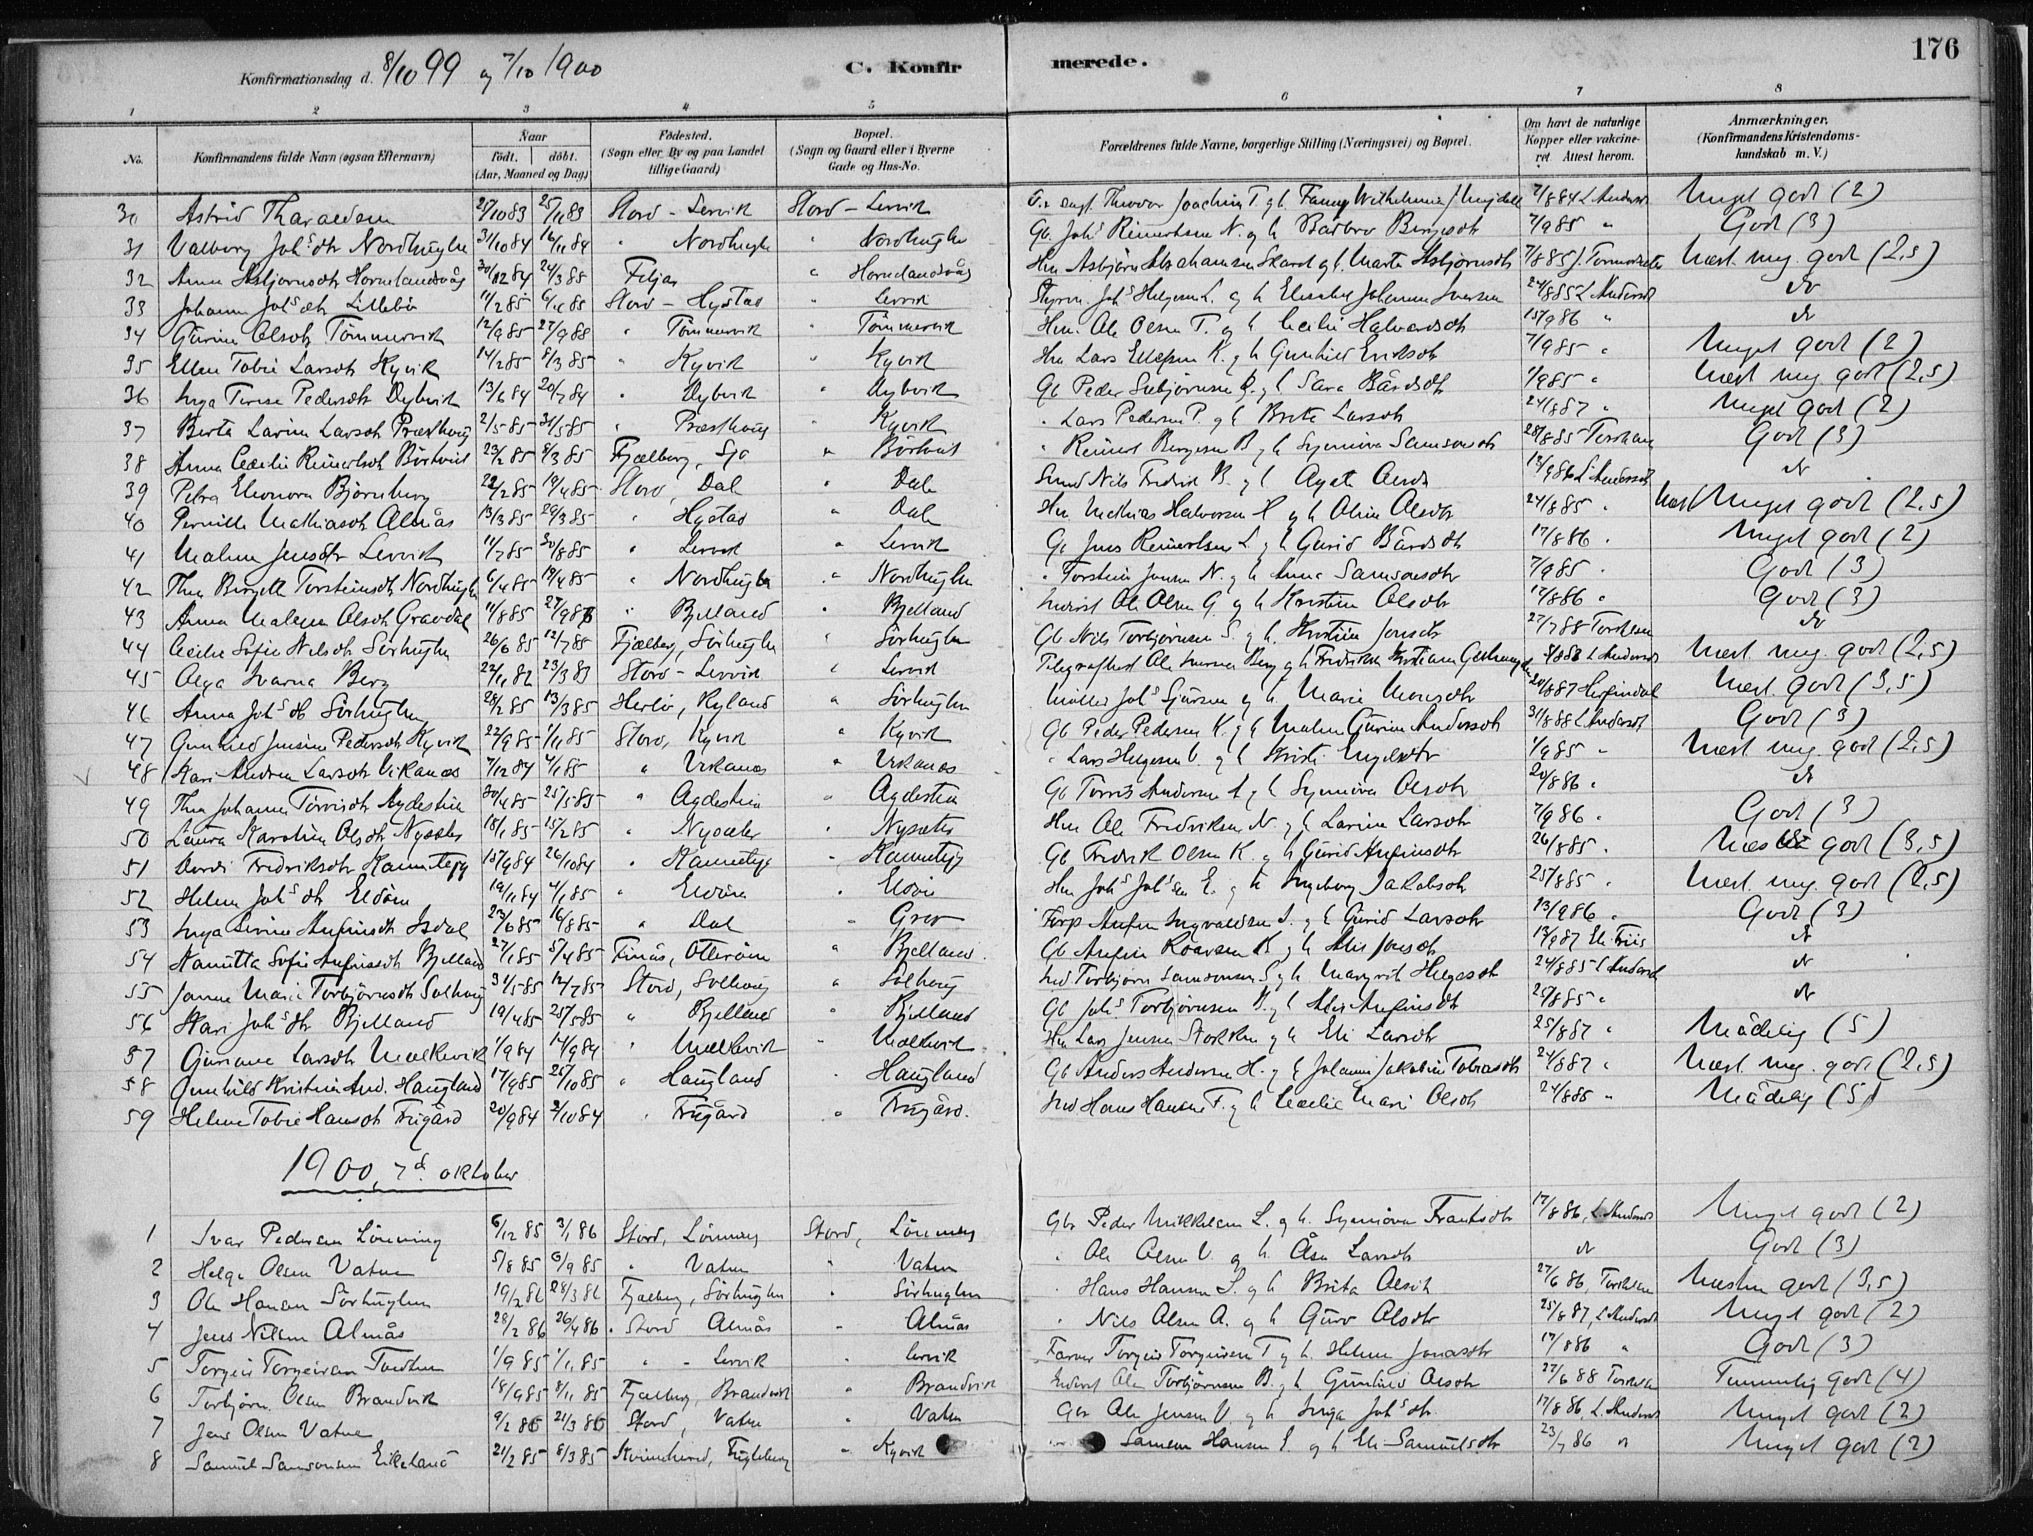 176
Konfirmationsdag d. 8/10 99 og 7/10 1900
C. Konfirmerede.
1 2 3 4 5 6 7 8
No.
Konfirmandens fulde Navn (ogsaa Efternavn)
Naar
født. døbt.
(Aar, Maaned og Dag)
Fødested.
(Sogn eller By og paa Landet tillige Gaard)
Bopæl.
(Sogn og Gaard eller i Byerne Gade og Hus-No.
Forældrenes fulde Navne, borgerlige Stilling (Næringsvei) og Bopæl.
Om havt de naturlige Kopper eller vakcineret. Attest herom.
Anmærkninger.
(Konfirmandens Kristendomskundskab m. V.)
30 Astrid Tharaldsen 27/10 83 25/11 83 Stord - Lervik Stord - Lervik Theodor Joachim T. g h. Fanny Wilhelmine 7/8 84 L Anders Meget godt (2)
31 Valborg Johs dtr Nordhuglen 31/10 84 16/11 84 " Nordhugle " Nordhuglen Gb. Johs Reinertsen N. og h Barbro Bergesdt 7/9 85 " Godt (3)
32 Anna Asbjørnsdt Hornelandsvåg 30/12 84 24/3 85 Fitjar " Hornelandsvåg Hm Asbjørn Abrahamsen g h. Marta Asbjørnsdt 7/8 85 Næst meg. godt (2,5)
33 Johanna Johs dt Lillebø 11/2 85 6/4 85 Stord - Hystad " Lervik Johs Helgesen L. og h Elisabet Johanne Iversen 24/8 85 L Anders do
34 Gurine Olsdtr Tømmervik 12/9 85 27/9 88 " Tømmervik " Tømmervik Hm. Ole Olsen T. og h Cecilie Halvardsdt 15/9 86 " do
35 Ellen Tobie Larsdt Kyvik 14/2 85 8/3 85 " Kyvik " Kyvik Hm Lars Ellefsen K. g h Gunhild Eriksdt 7/9 85 " Meget godt (2)
36 Inga Terese Pedersdt Dybvik 13/6 84 20/7 84 " Dybvik " Dybvik Gb Peder Sæbjørnsen D. g h Sara Bårdsdt 1/9 85 " Næst meg. godt (2,5)
37 Berta Larine Larsdt Præsthaug 2/5 85 31/5 85 " Præsthaug " Kyvik " Lars Pedersen P. og h Brita Larsdt 24/8 87 " Meget godt (2)
38 Anna Cecilie Reinertsdt Børtveit 23/2 85 8/3 85 Fjælberg, Sjo " Børtveit " Reinert Bergesen B g h Synnøva Samsonsdt 28/8 85 Godt (3)
39 Petra Eleonora Bjørnberg 22/2 85 19/4 85 Stord, Dal " Dale Smed Nils Fredrik B. g h Agate Olsdt 13/9 86 L. Anderssdt do
40 Pernille Mathiasdt Almås 13/3 85 29/3 85 " Hystad " Dale Hm Mathias Halvorsen og h Oline Olsdtr 24/8 85 " Næst Meget godt (2,5)
41 Malene Jensdtr Lervik 11/7 85 30/8 85 " Lervik " Lervik Gb Jens Reinertsen L g h Gurid Bårdsdt 17/8 86 " Meget godt (2)
42 Thea Birgitte Torsteinsdt Nordhuglen 6/4 85 19/4 85 " Nordhuglen " Nordhuglen " Torstein Jonsen N. g h Anna Samsonsdtr 7/9 85 " Godt (3)
43 Anna Malene Olsdt Gravdal 11/8 85 27/9 86 " Bjelland " Bjelland Indrst Ole Olsen G. og h Kirstine Olsdtr 12/8 86 " Godt (3)
44 Cecilie Sofie Nilsdt Sørhuglen 26/6 85 12/7 85 Fjælberg, Sørhuglen " Sørhuglen Gb Nils Torbjørnsen S. g h. Kirstine Jonsdtr 27/7 88 Torstein do
45 Olga Ivarna Berg 22/11 82 23/3 83 Stord - Lervik " Lervik Telegrafbest. Ole Ivarsen Berg g h Fredrikke Kristiane 8/8 86 L Anders Næst meg. godt (2,5)
46 Anna Johs dt Sørhuglen 28/2 85 13/3 85 Herlø, Ryland " Sørhuglen Møller Johs Sjursen og h Marie Monsdtr 20/8 87 Næst godt (3,5)
47 Gunhild Jensine Pedersdt Kyvik 22/9 85 1/11 85 Stord, Kyvik " Kyvik Gb Peder Pedersen K. g h Malene Gurine Andersdt 31/8 88 L Andersdt Godt (3)
48 Kari Andrea Larsdt Vikanes 7/12 84 4/1 85 " Vikanes " Vikanes " Lars Helgesen V g h Kristi Ingelsdtr 1/9 85 " Næst meg. godt (2,5)
49 Thea Johanne Tørrisdt Agdestein 30/4 85 25/5 85 " Agdestein " Agdestein Gb Tørris Andersen A g h Synnøva Olsdtr 20/8 86 " do
50 Laura Karoline Olsdtr Nysæter 18/1 85 15/2 85 " Nysæter " Nysæter Hm Ole Fredriksen N g h Larine Larsdtr 7/9 86 " Godt (3)
51 Fredriksdtr Kannelegg 15/9 84 26/10 84 " Kannelegg " Kannelegg Gb Fredrik Olsen K. g h Gurid Anfinsdtr 26/8 85 " Næsten godt (3,5)
52 Helene Johs dt Eldøen 19/11 84 4/1 85 " Eldøen " Eldøen Hm Johs Johs sen E. g h Ingeborg Jakobsdtr 25/8 85 " Næst meg. godt (2,5)
53 Inga Sivine Anfinsdt Isdal 23/6 85 16/8 85 " Dal " Grov Anfin Ingvaldsen I. g h Gurid Larsdtr 13/9 86 " Godt (3)
54 Sofie Anfinsdt Bjelland 27/1 85 5/4 85 Finås, Otterøen " Bjelland Gb Anfin Roarsen K g h Alis Jonsdt 13/9 87 Eli Friis do
55 Janna Marie Torbjørnsdt Solhaug 31/5 85 12/7 85 Stord, Solhaug " Solhaug Ind Torbjørn Samsonsen S g h Margrit Helgesdt 24/8 85 L Anders do
56 Kari Johs dtr Bjelland 19/4 85 25/5 85 " Bjelland " Bjelland Gb Johs Torbjørnsen B. g h Alis Anfinsdt 25/8 85 " do
57 Guriane Larsdt Mælkevik 1/9 84 14/9 84 " Mælkevik " Mælkevik Hm Lars Jensen Stokken g h Eli Larsdt 25/8 87 " Mådelig (5)
58 Gunhild Kristine And. Haugland 17/9 85 25/10 85 " Haugland " Haugland Gb Anders Andersen H. g h Johanne Jakobine Tobiasdt 24/8 87 " Næst meg. godt (2,5)
59 Helene Tobie Hansdt Frugård 20/9 84 2/10 84 " Frugård " Frugård. Ind Hans Hansen F. g h Cecilie Marie Olsdt 24/8 85 " Mådelig (5)
1900, 7d. oktober
1 Ivar Pedersen Lønning 6/12 85 3/1 86 Stord, Lønning Stord, Lønning Gbr Peder Mikkelsen L. g h. Synnøva Frantsdtr 17/8 86, L. Anders Meget godt (2)
2 Helge Olsen Vatne 5/8 85 6/9 85 " Vatne " Vatne " Ole Olsen V og h. Åsa Larsdt do Godt (3)
3 Ole Hansen Sørhuglen 19/2 86 28/3 86 Fjælberg, Sørhuglen " Sørhuglen " Hans Hansen S. og h Brita Olsdt 27/6 86, Torstein Næsten godt (3,5)
4 Jens Nilsen Almås 28/2 86 26/4 86 " Stord Almås " Almås " Nils Olsen A. og h Guro Olsdtr 25/8 87, L Andersdt Meget godt (2)
5 Torgeir Torgeirsen 1/9 85 1/11 85 " - Lervik " Lervik Farver Torgeir Torgeirsen T g h. Helene Jonasdtr 17/8 86 " Godt (3)
6 Torbjørn Olsen Brandvik 18/9 85 8/11 85 Fjælberg, Brandvik " Brandvik Inderst Ole Torbjørnsen B. g h Gunhild Olsdtr 27/6 88 Torstein Temmelig godt (4)
7 Jens Olsen Vatne 9/2 86 21/3 86 Stord, Vatne " Vatne Gbr Ole Jensen V og h Inga Johs dtr 17/8 86, L. Anders Meget godt (2)
8 Samuel Samsonsen Eikeland 21/2 85 8/3 85 Kvinnherred, Fugleberg " Kyvik Samson Hansen E. og h Eli Samuelsdtr 23/7 86 " Meget godt (2)